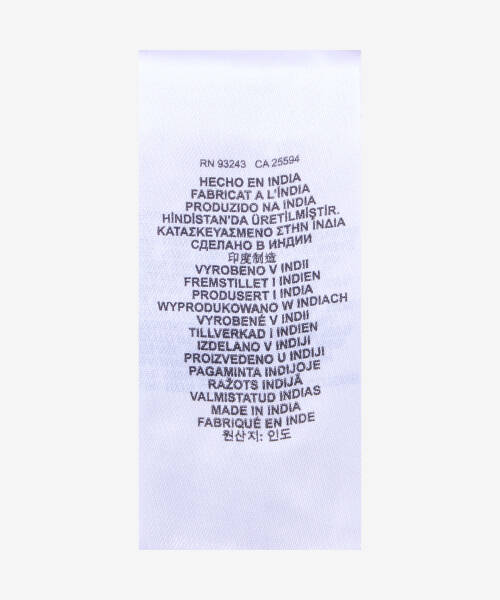 RN 93243 CA 25594
HECHO EN INDIA
FABRICAT A L'ÍNDIA
PRODUZIDO NA INDIA
HİNDİSTAN'DA ÜRETİLMİŞTİR.
ΚΑΤΑΣΚΕΥΑΣΜΕΝΟ ΣΤΗΝ ΙΝΔΙΑ
СДЕЛАНО В ИНДИИ
印度制造
VYROBENO V INDII
FREMSTILLET I INDIEN
PRODUSERT I INDIA
WYPRODUKOWANO W INDIACH
VYROBENÉ V INDII
TILLVERKAD I INDIEN
IZDELANO V INDIJI
PROIZVEDENO U INDIJI
PAGAMINTA INDIJOJE
RAŽOTS INDIJĀ
VALMISTATUD INDIAS
MADE IN INDIA
FABRIQUÉ EN INDE
원산지: 인도